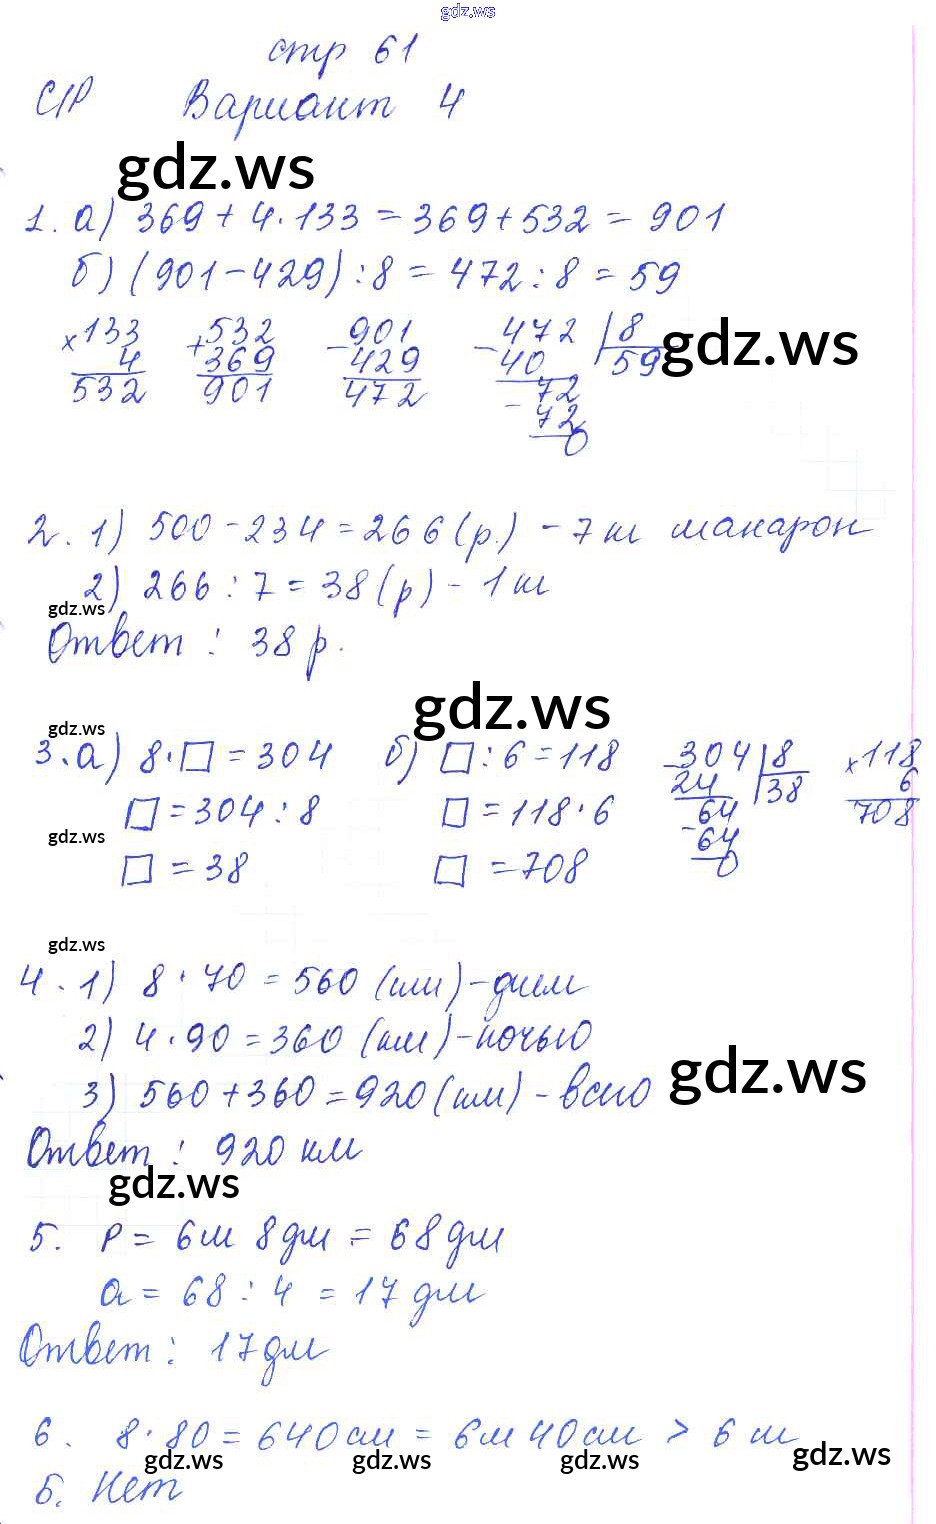 gdz.ws
стр 61
С/Р Вариант 4
gdz.ws
1. а) 369 + 4 · 133 = 369 + 532 = 901
б) (901 - 429) : 8 = 472 : 8 = 59
× 133 + 532 - 901 - 472 | 8
4 369 429 40 59 gdz.ws
532 901 472 72
- 72
0
2. 1) 500 - 234 = 266 (р.) - 7 п макарон
2) 266 : 7 = 38 (р) - 1 п
gdz.ws
Ответ : 38 р.
gdz.ws
gdz.ws
3. а) 8 · □ = 304 б) □ : 6 = 118 - 304 | 8 × 118
□ = 304 : 8 □ = 118 · 6 24 38 6
gdz.ws 64 708
- 64
□ = 38 □ = 708 0
gdz.ws
4. 1) 8 · 70 = 560 (км) - днем
2) 4 · 90 = 360 (км) - ночью
gdz.ws
3) 560 + 360 = 920 (км) - всего
Ответ : 920 км
gdz.ws
5. P = 6м 8дм = 68 дм
a = 68 : 4 = 17 дм
Ответ : 17 дм
6. 8 · 80 = 640 см = 6м 40 см > 6 м
gdz.ws gdz.ws gdz.ws gdz.ws
Б. Нет